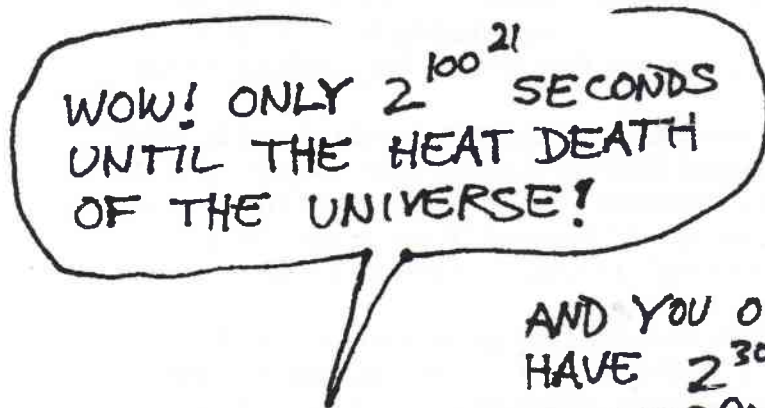 WOW! ONLY 2^100^21 SECONDS
UNTIL THE HEAT DEATH
OF THE UNIVERSE!
AND YOU O
HAVE 2^30